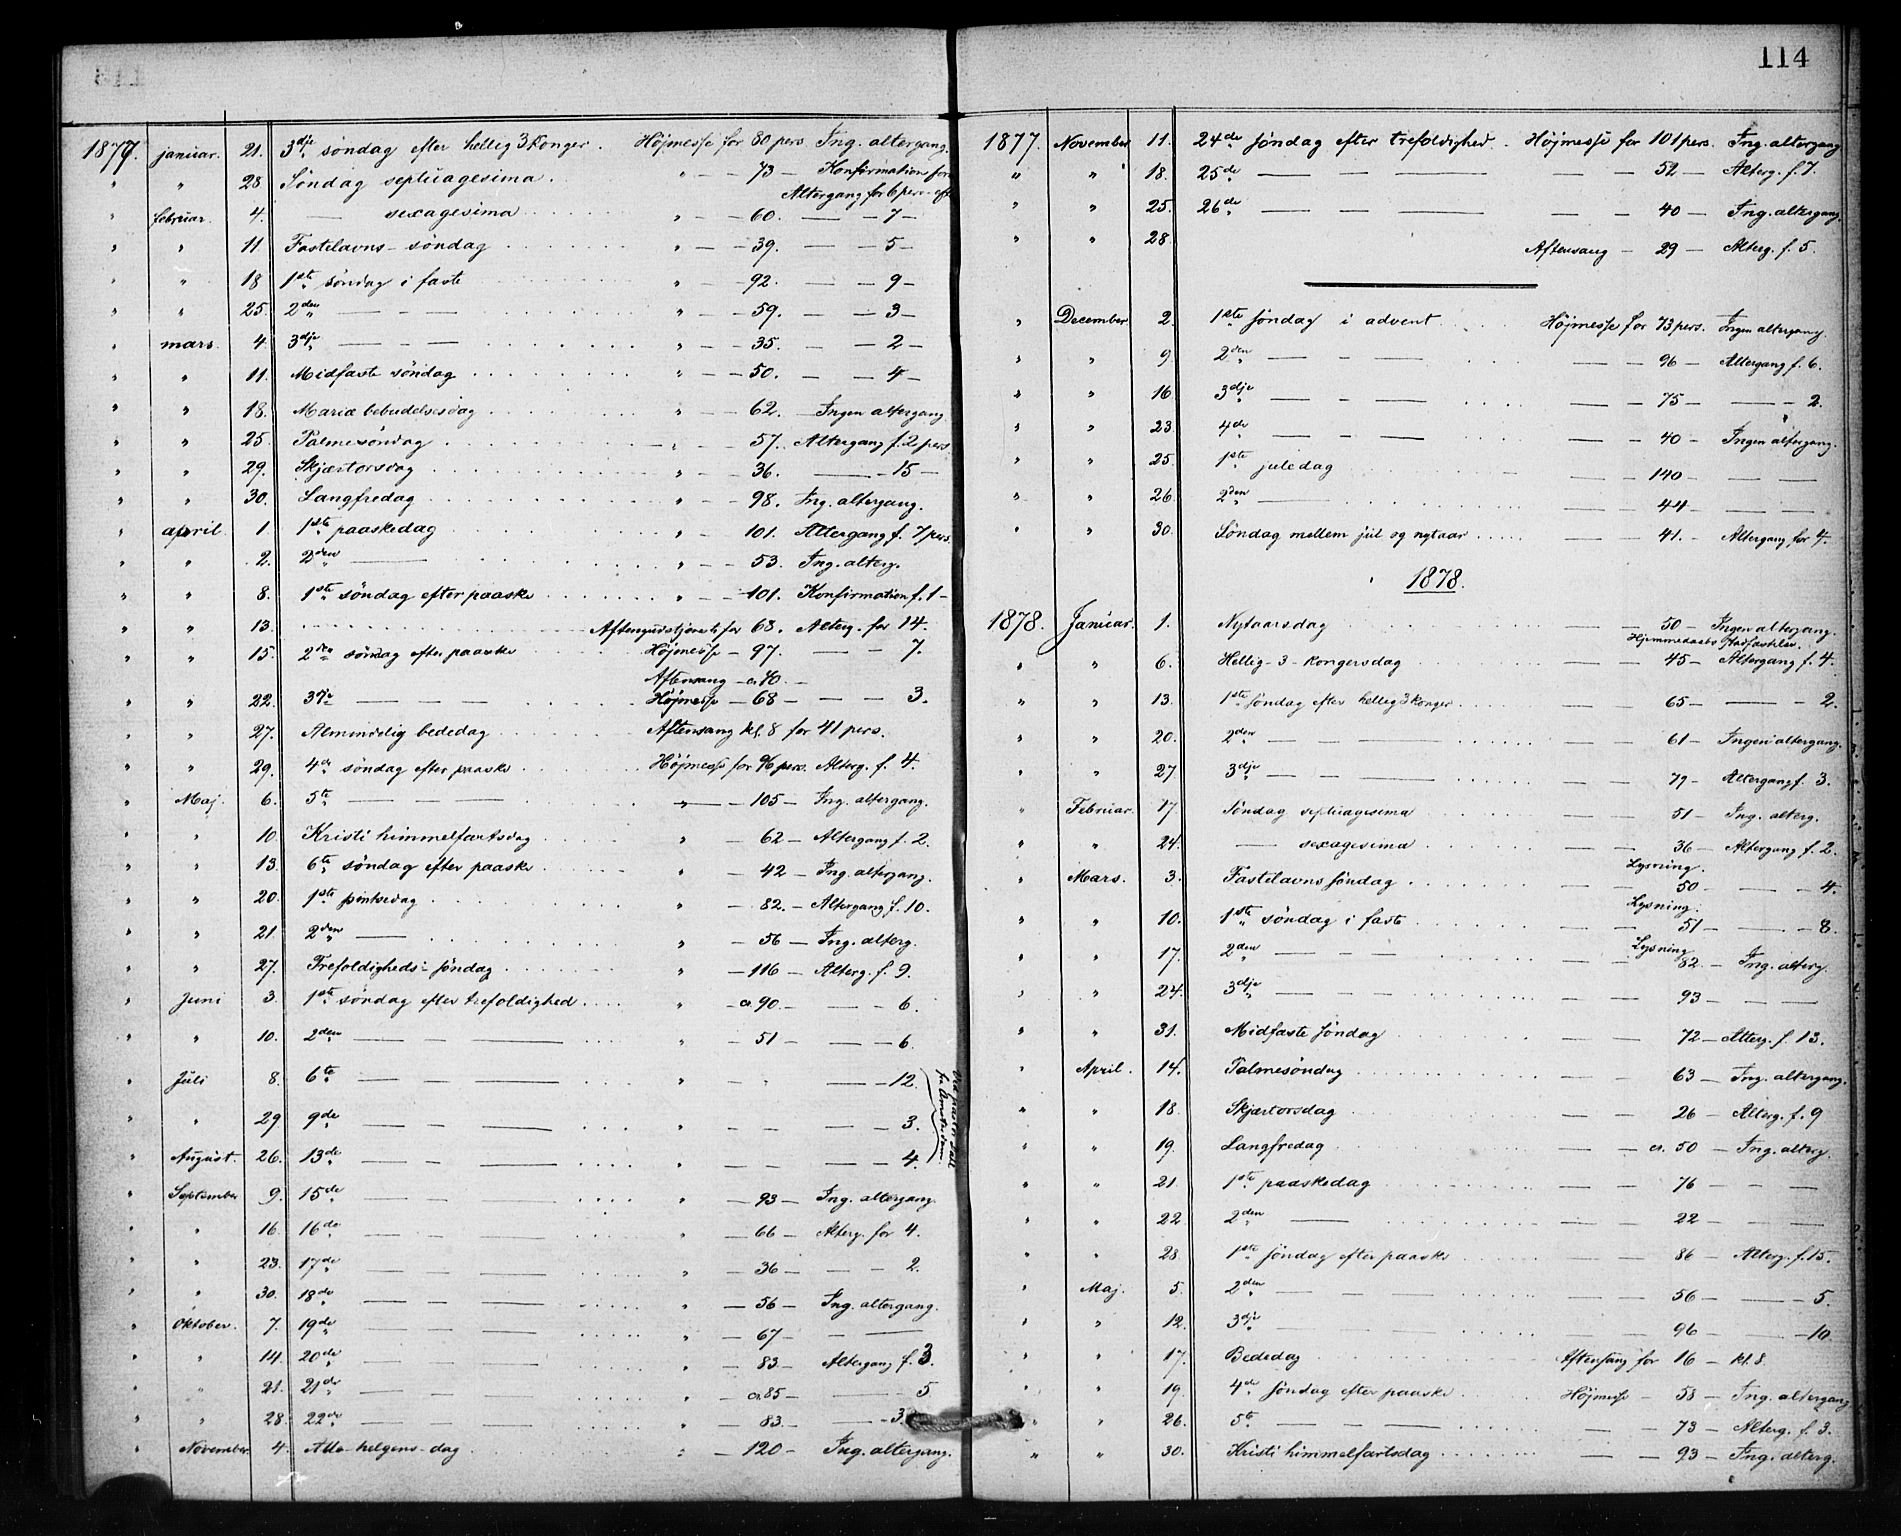 1877. januar. 21. 3dje søndag efter hellig 3 Konger. Højmesse for 80 pers. Ing. altergang.
" " 28 Søndag septuagesima . " — 73 — Konfirmation for
Altergang for 6 pers. eft
" februar. 4. — sexagesima " — 60. — — 7 —
" " 11 Fastelavns-søndag " — — 39. — — 5 —
" " 18 1ste søndag i faste " — — 92. — — 9 —
" " 25. 2den — — — " — — 59. — — 3 —
" mars. 4 3dje — — — " — — 35. — — 2 —
" " 11. Midfaste søndag " — — 50. — — 4 —
" " 18. Mariæ bebudelsesdag " — — 62. — Ingen altergang
" " 25. Palmesøndag " — — 57. Altergang f. 2 pers
" " 29. Skjærtorsdag " — — 36. — — 15 —
" " 30. Langfredag " — — 98. Ing. altergang.
" april. 1. 1ste paaskedag " — — 101. Altergang f. 7 pers.
" " 2. 2den — " — — 53. Ing. alterg.
" " 8. 1ste søndag efter paaske " — — 101. Konfirmation f. 1 —
" " 13. Aftengudstjeneste for 68. Alterg. for 14.
" " 15. 2den søndag efter paaske Højmesse — 97. — — 7.
Aftensang — ca 40. —
" " 22. 3dje — — — Højmesse — 68 — — — 3.
" " 27. Almindelig bededag Aftensang kl. 8 for 41 pers.
" " 29. 4de søndag efter paaske Højmesse for 96 pers. Alterg. f. 4.
" Maj. 6. 5te — — — " — — 105 — Ing. altergang.
" " 10. Kristi himmelfartsdag " — 62 — Altergang f. 2.
" " 13. 6te søndag efter paaske " — 42 — Ing. altergang.
" " 20. 1ste pintsedag " — 82. — Altergang f. 10.
" " 21. 2den — " — 56 — Ing. alterg.
" " 27. Trefoldigheds-søndag " — 116 — Alterg. f. 9.
" Juni 3. 1ste søndag efter trefoldighed " ca. 90 — — — 6.
" " 10. 2den — — — " — 51 — — — 6.
" Juli 8. 6te — — — " — " — — 12.
" " 29 9de — — — " — — — — 3.
" August. 26. 13de — — — " — — — — 4.
" September 9. 15de — — — " — 93 — Ing. altergang
" " 16. 16de — — — " — 66 — Alterg. for 4.
" " 23. 17de — — — " — 36 — — — 2.
" " 30. 18de — — — " — 56 — Ing. altergang.
" Oktober. 7. 19de — — — " — 67 — — —
" " 14. 20de — — — " — 83 — Altergang f. 3.
" " 21. 21de — — — " ca. 85 — — 5
" " 28. 22de — — — " — 83. — — 3.
" November. 4. Alle-helgens-dag " — 120 — Ing. altergang.
114
1877. November 11. 24de søndag efter trefoldighed. Højmesse for 101 pers. Ing. altergang
" " 18. 25de — — — — — 52 — Alterg. f. 7.
" " 25. 26de — — — — — 40 — Ing. altergang.
" " 28. Aftensang — 29 — Alterg. f. 5.
" December 2. 1ste søndag i advent Højmesse for 73 pers. Ingen altergang.
" " 9. 2den — — — — — 96 — Altergang f. 6.
" " 16. 3dje — — — — — 75 — — — 2.
" " 23. 4de — — — — — 40 — Ingen altergang.
" " 25. 1ste juledag — — 140 — — —
" " 26. 2den — — — 44 — — —
" " 30. Søndag mellem jul og nytaar — — 41. — Altergang for 4.
1878.
1878. Januar. 1. Nytaarsdag — — 50 — Ingen altergang.
Hjemmedaabs stadfæstelse.
" " 6. Hellig-3-kongersdag — — 45 — Altergang f. 4.
" " 13. 1ste søndag efter hellig 3 konger — — 65 — — — 2.
" " 20. 2den — — — — — 61 — Ingen altergang.
" " 27 3dje — — — — — 79 — Altergang f. 3.
" Februar. 17. Søndag septuagesima — — 51 — Ing. alterg.
" " 24. — sexagesima — — 36 — Altergang f. 2.
Lysning.
" Mars. 3. Fastelavns søndag — — 50 — — — 4.
Lysning.
" " 10. 1ste søndag i faste — — 51 — — — 8.
Lysning
" " 17. 2den — — — — — 82 — Ing. alterg.
" " 24. 3dje — — — — — 93 — — —
" " 31. Midfaste søndag — — 72 — Alterg. f. 13.
" April. 14. Palmesøndag — — 63 — Ing. altergang.
" " 18. Skjærtorsdag — — 26 — Alterg. f. 9
" " 19. Langfredag — ca. 50 — Ing. alterg.
" " 21 1ste paaskedag — — 76 — — —
" " 22 2den — — — 22 — — —
" " 28 1ste søndag efter paaske — — 86 — Alterg. f. 15.
" Maj. 5. 2den — — — — — 56 — — — 5.
" " 12. 3dje — — — — — 96 — — — 10.
" " 17. Bededag Aftensang for 16 — kl. 8.
" " 19. 4de søndag efter paaske Højmesse — 58 — Ing. altergang
" " 26. 5te — — — — — 73 — Alterg. f. 3.
" " 30. Kristi himmelfartsdag — — 93 — Ing. alterg.